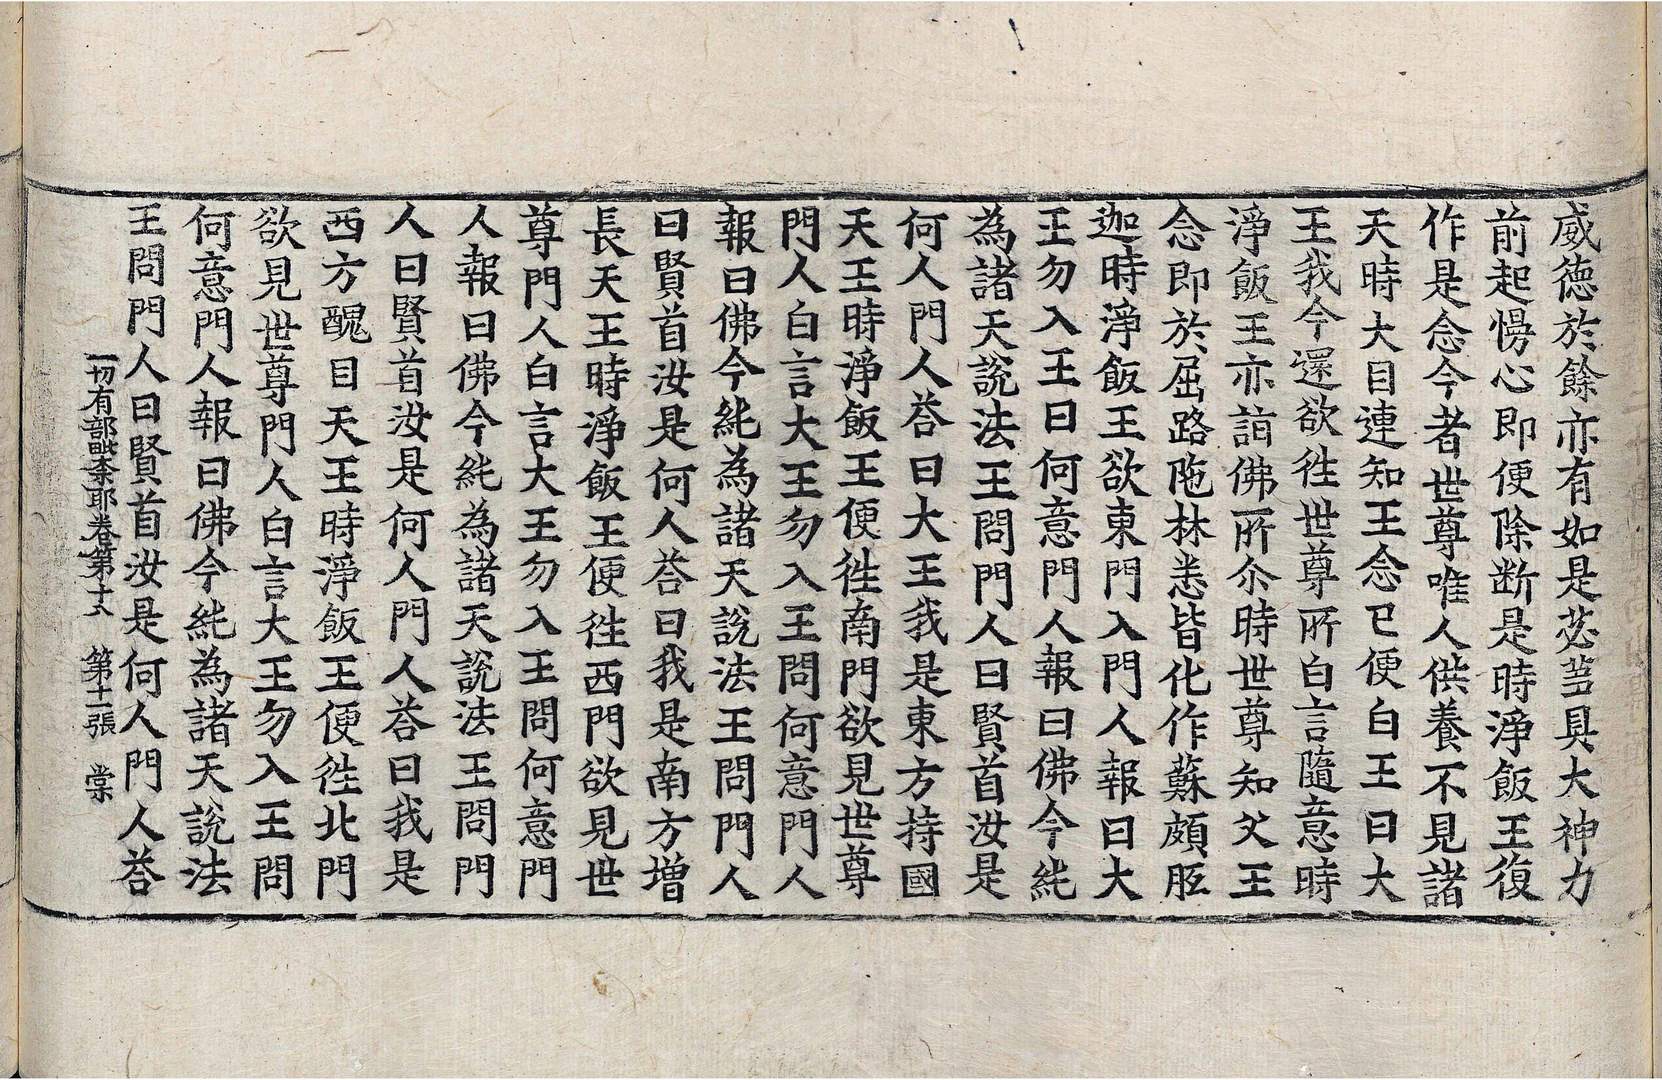 威德於餘亦有如是苾芻具大神力
前起慢心即便除断是時淨飯王復
作是念今者世尊唯人供養不見諸
天時大目連知王念已便白王曰大
王我今還欲徃世尊所白言隨意時
淨飯王亦詣佛所尒時世尊知父王
念即於屈路陁林悉皆化作蘇頗胝
迦時淨飯王欲東門入門人報曰大
王勿入王曰何意門人報曰佛今純
為諸天說法王問門人曰賢首汝是
何人門人荅曰大王我是東方持國
天王時淨飯王便徃南門欲見世尊
門人白言大王勿入王問何意門人
報曰佛今純為諸天說法王問門人
曰賢首汝是何人荅曰我是南方增
長天王時淨飯王便徃西門欲見世
尊門人白言大王勿入王問何意門
人報曰佛今純為諸天說法王問門
人曰賢首汝是何人門人荅曰我是
西方醜目天王時淨飯王便徃北門
欲見世尊門人白言大王勿入王問
何意門人報曰佛今純為諸天說法
王問門人曰賢首汝是何人門人荅
一切有部毗柰耶卷第十八 第十一張 棠